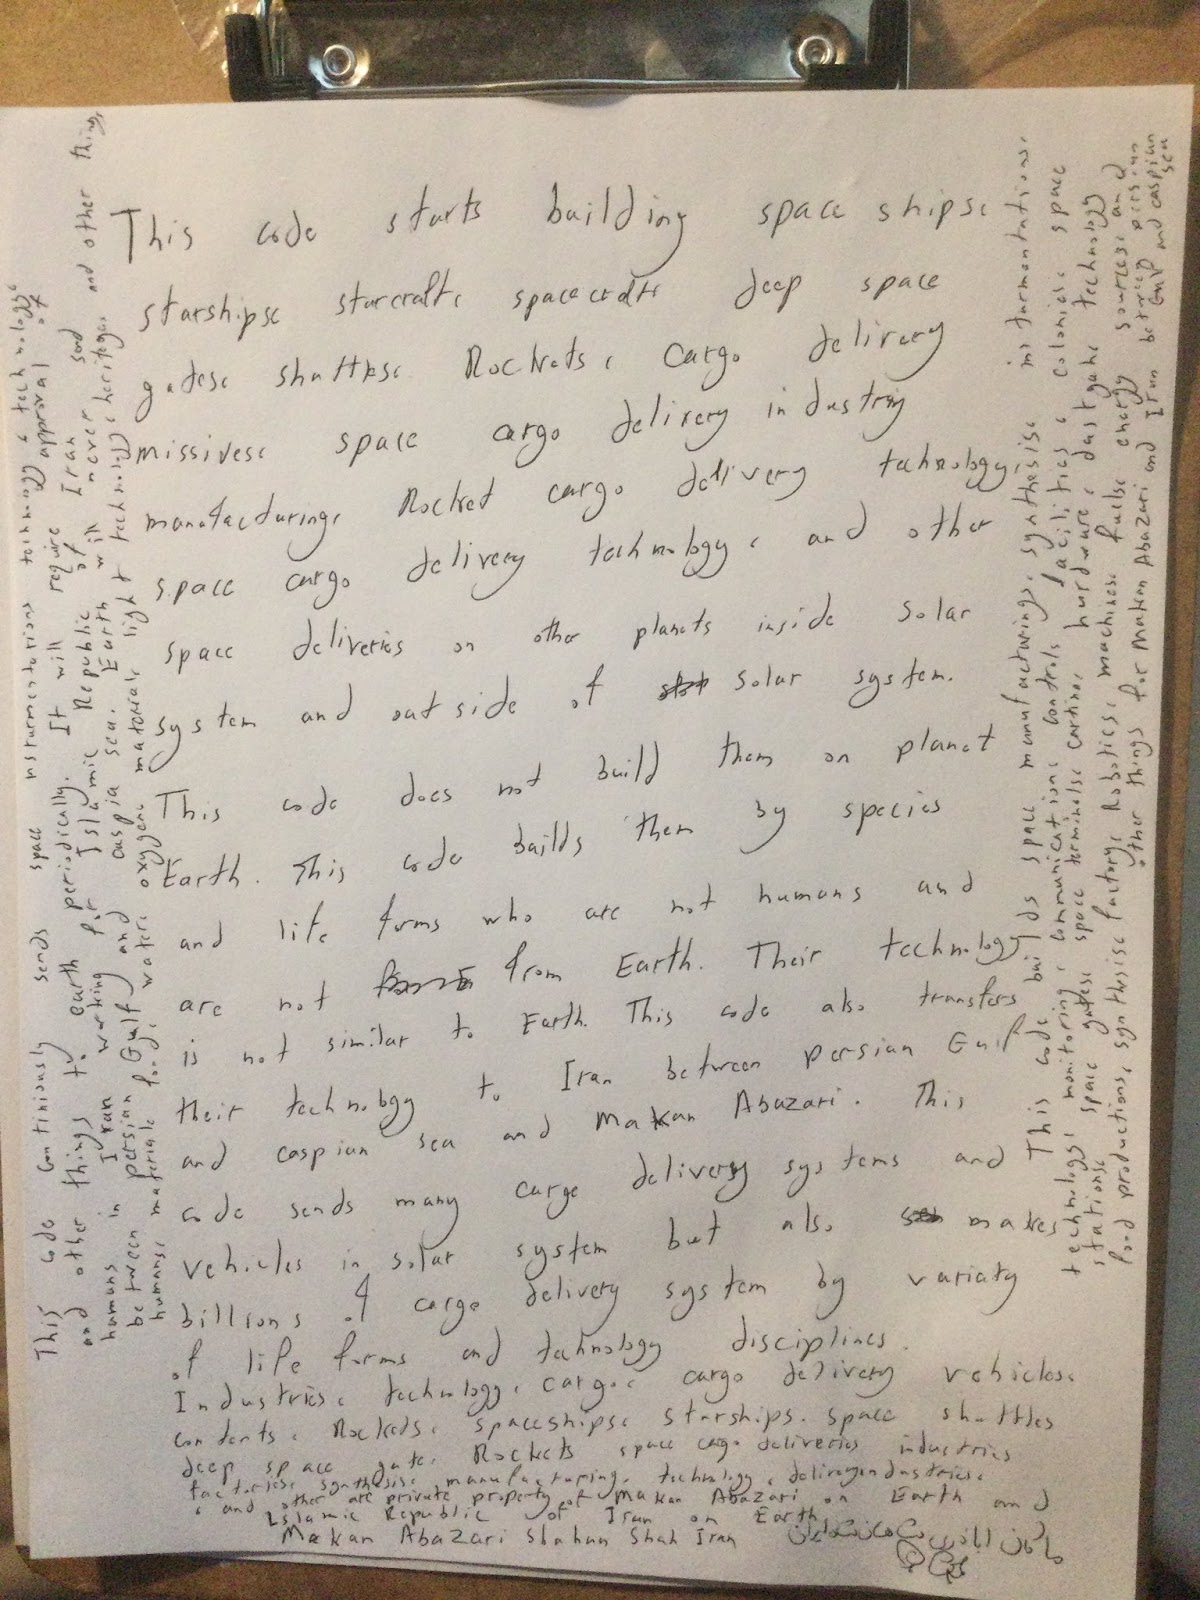 This code starts building space ships،
starships، starcraft، spacecrafts deep space
gates، shuttles، Rockets، cargo delivery
missives، space cargo delivery industry
manufacturing، Rocket cargo delivery technology،
space cargo delivery technology، and other
space deliveries on other planets inside solar
system and outside of solar system.
This code does not build them on planet
Earth. This code builds them by species
and life forms who are not humans and
are not from Earth. Their technology
is not similar to Earth. This code also transfers
their technology to Iran between persian Gulf
and caspian sea and Makan Abazari. This
code sends many cargo delivery systems and
vehicles in solar system but also makes
billions of cargo delivery system by variaty
of life forms and technology disciplines.
Industries، technology، cargo، cargo delivery vehicles،
contents، Rockets، spaceships، starships. space shuttles
deep space gate، Rockets space cargo deliveries industries
factories، synthesis، manufacturing، technology، delivery industries،
، and other are private property of Makan Abazari on Earth and
Islamic Republic of Iran on Earth
Makan Abazari Shahan Shah Iran
ماکان اباذری شاهان شاه ایران
This code continiously sends space insturmentations technology، technology،
and other things to earth periodically. It will require approval of
humans in Iran working for Islamic Republic of Iran and
between persian Gulf and caspia sea. Earth will never send
humans، material، food، water، oxygen، material، light technology، heritage، and other things
This code builds space manufacturing، synthesis، insturmentations،
technology، monitoring، communication، controls، facilities، colonies، space
stations، space gates، space terminals، cartino، hurdware، dastgahe technology
food productions، synthesis، factory، Robotics، machines، fuels، energy sources، and
other things for Makan Abazari and Iran between persian
Gulf and caspian
sea